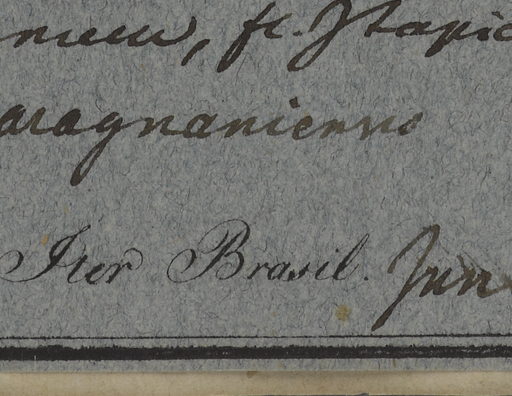 fl. Itapic
aragnaniensis
Iter Brasil. Jun